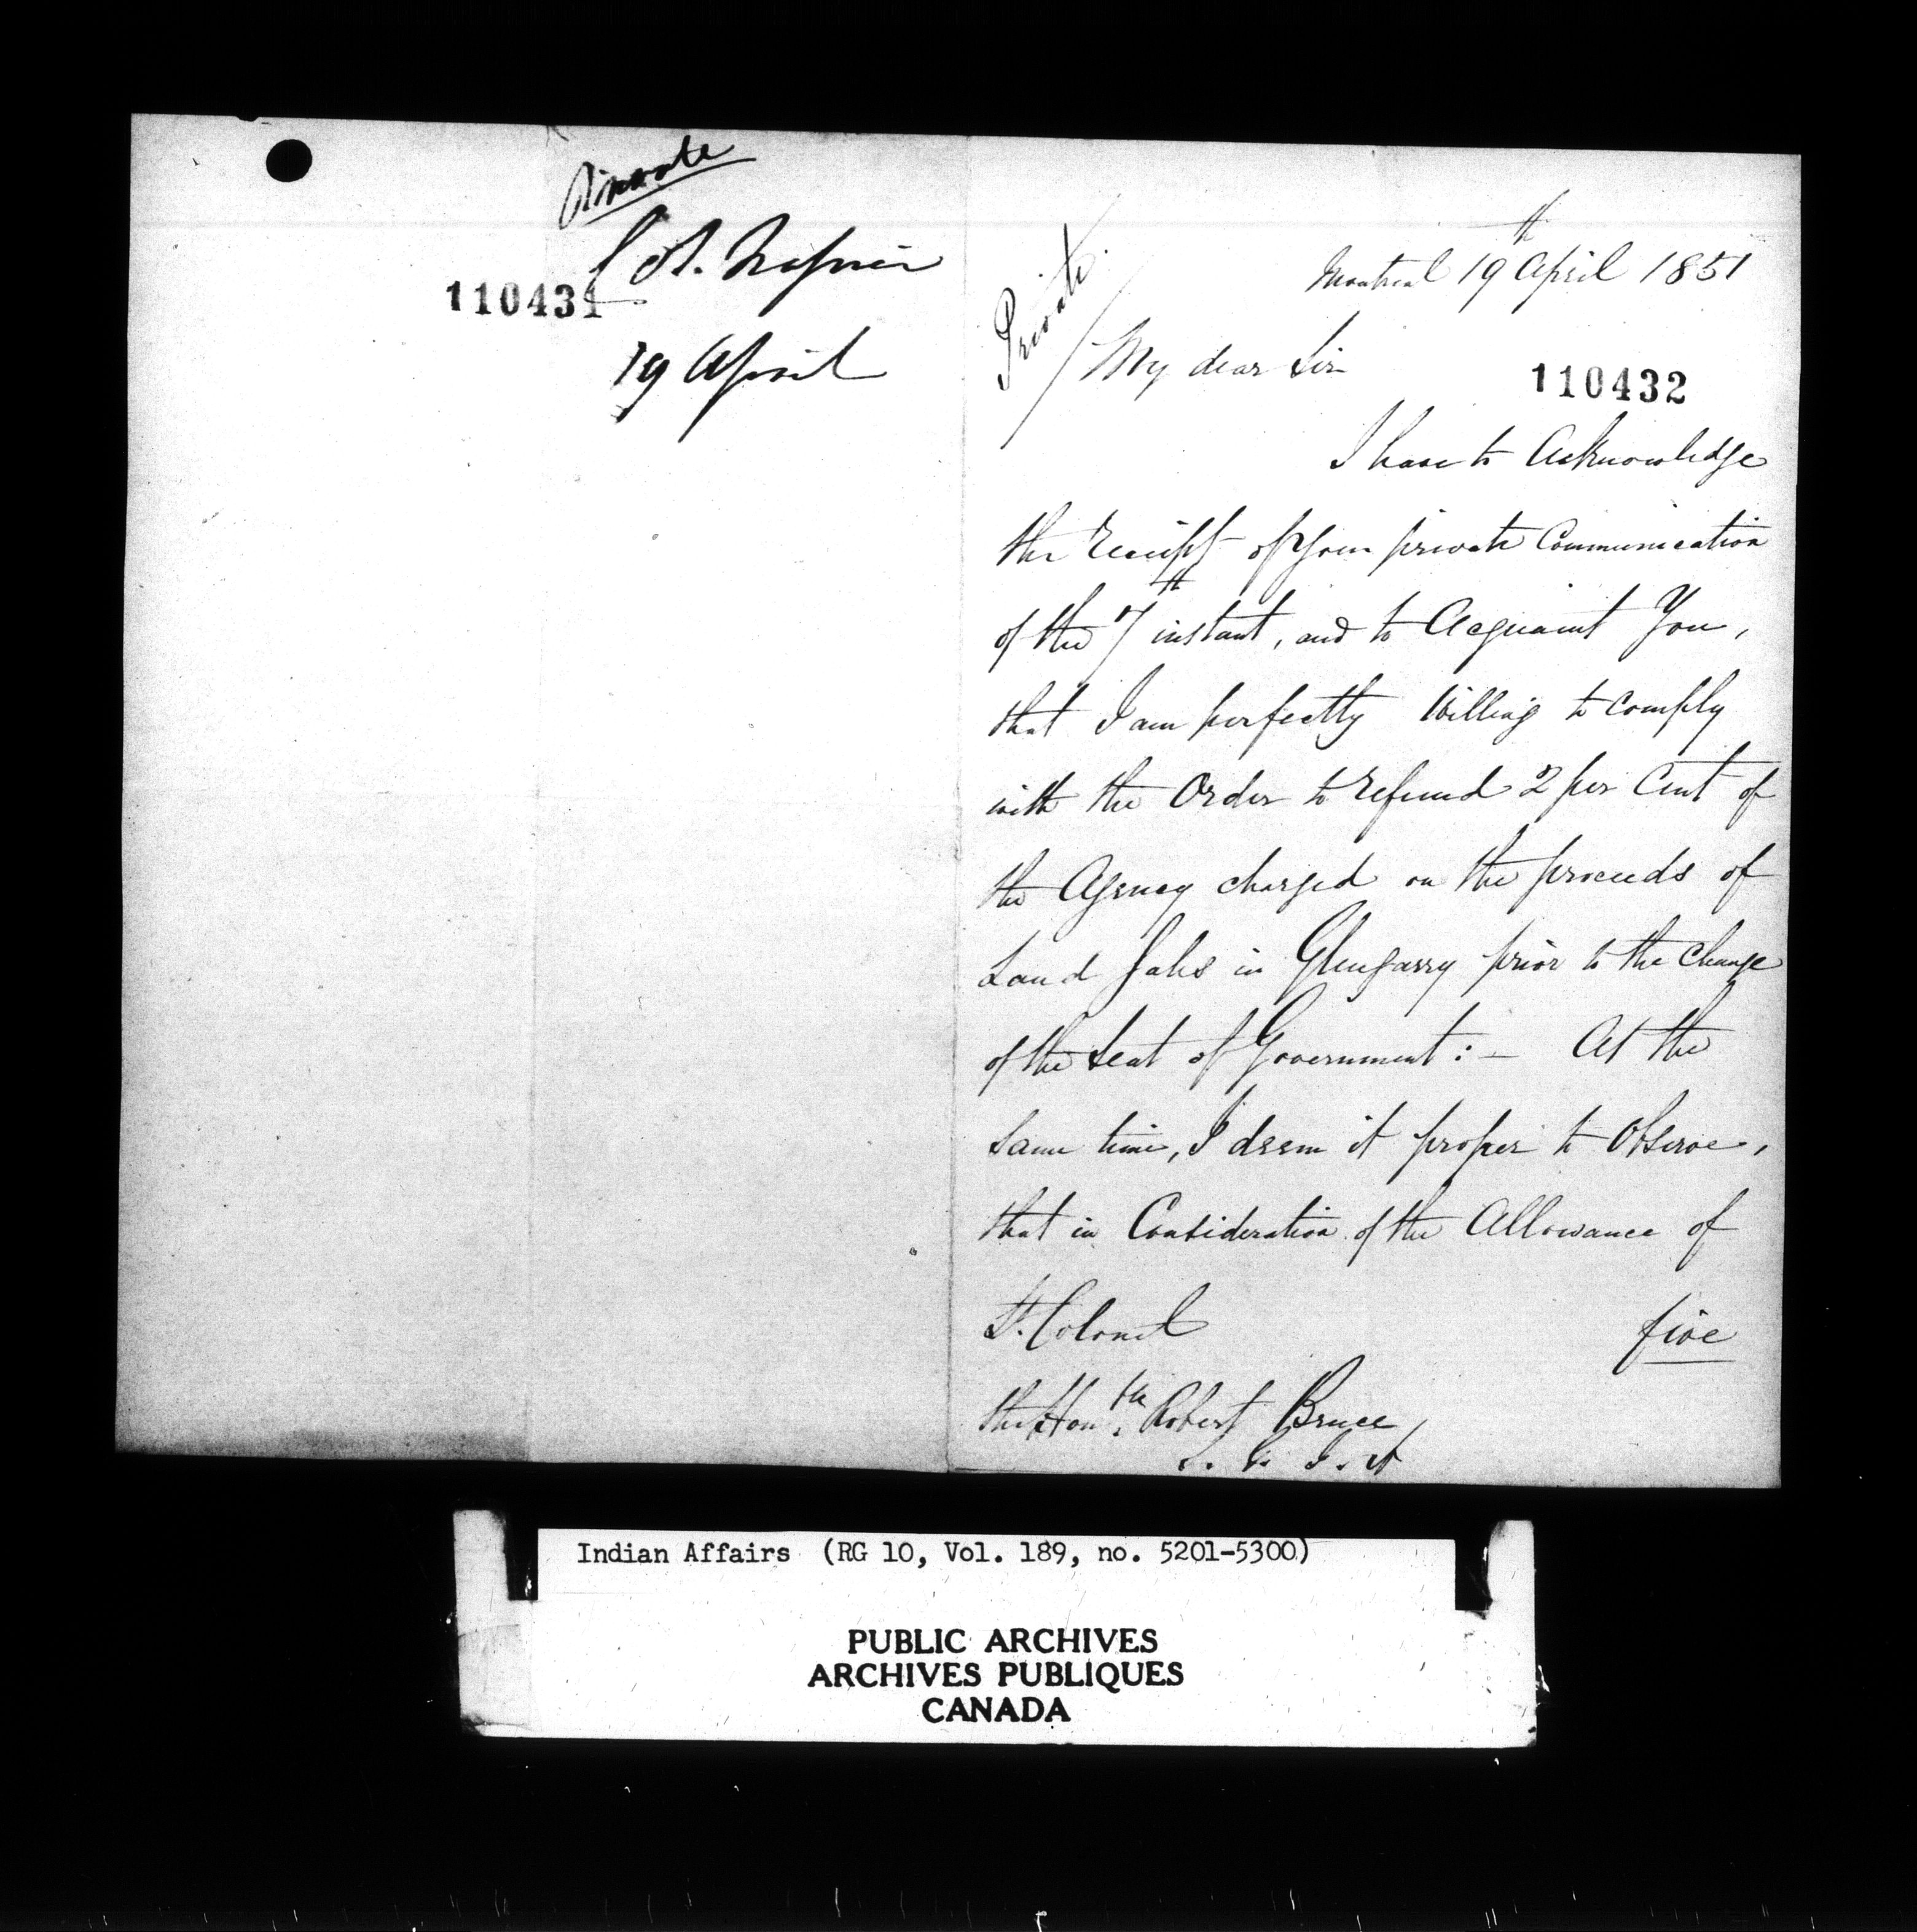 Private
Col. Napier
110431
19 April
Private
Montreal 19th April 1851
My dear Sir
110432
I have to Acknowledge
the receipt of your private Communication
of the 7th instant, and to Acquaint You,
that I am perfectly Willing to comply
with the Order to refund 2 per Cent of
the Agency charged on the proceeds of
Land Sales in Glengarry prior to the change
of the Seat of Government :— At the
same time, I deem it proper to Observe,
that in Consideration of the Allowance of
Lt. Colonel
five
the Honble. Robert Bruce
S. G. I. A
Indian Affairs (RG 10, Vol. 189, no. 5201-5300)
PUBLIC ARCHIVES
ARCHIVES PUBLIQUES
CANADA